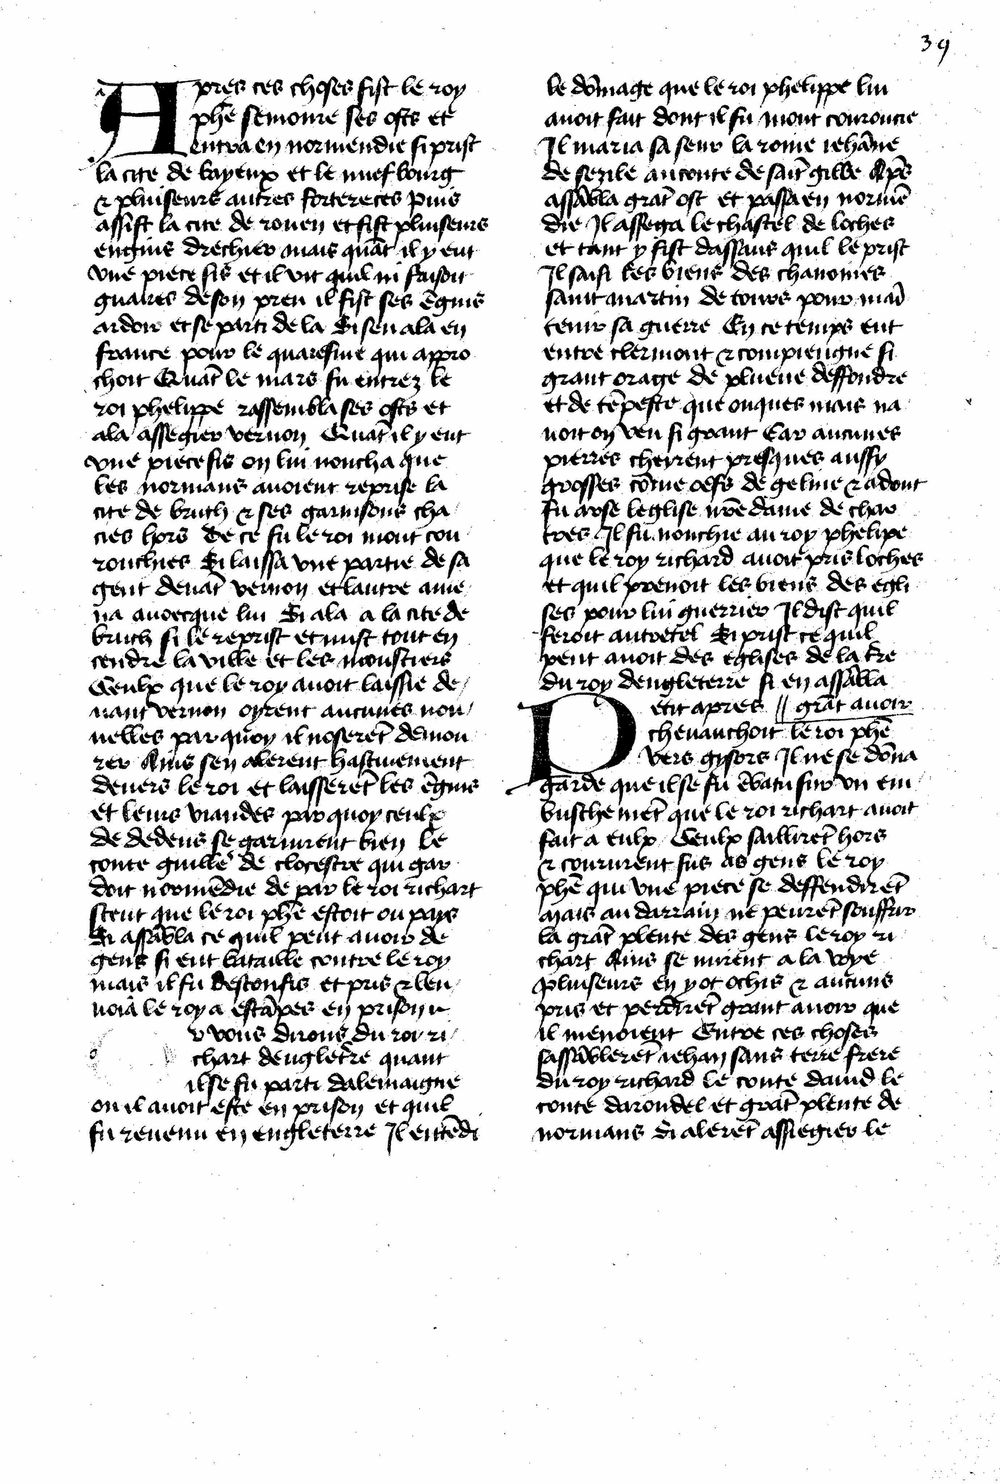 39
Apres ces choses fist le roy
phē semonre ses osts et
entra en normendie si prist
la cite de bayeux et le nuef bourg
& pluiseurs autres fortereces Puis
assist la cite de rouen et fist pluiseurs
engins drechier mais quāt il y eut
vne piece sis et il vit quil ni faisoit
guaires de son preu il fist ses ēgins
ardoir et se parti de la Si sen ala en
france pour le quaresme qui appro
choit Quāt le mars fu entrez le
roi phelippe rassembla ses osts et
ala assegier vernon Quāt il y eut
vne piece sis on lui noncha que
les normans auoient reprise la
cite de bruth & ses garnisons cha
cies hors De ce fu le roi mont cou
rouchies Si laissa vne partie de sa
gent deuāt vernon et lautre ame
na auoecque lui Si ala a la cite de
bruth si le reprist et mist tout en
cendre la ville et les moustiers
Ceulx que le roy auoit laissie de
uant vernon oyrent aucunes nou
uelles par quoy il noserēt demou
rer Ains sen alerent hastiuement
deuers le roi et laisserēt les ēgins
et leurs viandes par quoy ceulx
de dedens se garnirent bien Le
conte guille de clocestre qui gar
doit normēdie de par le roi richart
sceut que le roi phē estoit ou pays
Si assābla ce quil peut auoir de
gens si eut bataille contre le roy
mais il fu desconfis et pris & len
uoia le roy a estāpes en prison
r vous dirons du roi ri
chart dengletre quant
il se fu parti dalemaigne
ou il auoit este en prison et quil
fu reuenu en engleterre Il entēdi
le dōmage que le roi phelippe lui
auoit fait dont il fu mont couroucie
Il maria sa seur la roine iehāne
de sezile au conte de sait gille Apēs
assābla grāt ost et passa en normē
die Il assega le chastel de loches
et tant y fist dassaus quil le prist
Il saisi les biens des chanoines
saint martin de tours pour mai
tenir sa guerre En ce temps eut
entre clermont & compiengne si
grant orage de plueue deffondre
et de tēpeste que onques mais na
uoit on veu si grant Car aucunes
pierres cheyrent presques aussy
grosses cōme oefs de geline & adont
fu arse leglise nre dame de char
tres Il fu nonchie au roy phelipe
que le roy richard auoit pris loches
et quil prenoit les biens des egli
ses pour lui guerrier Il dist quil
feroit autretel Si prist ce quil
peut auoir des eglises de la tre
du roy dengleterre si en assābla
Petit apres // grāt auoir
cheuauchoit le roi phē
vers gisors Il ne se dōna
garde que il se fu ēbatu sur vn em
buschemēt que le roi richart auoit
fait a eulx Ceulx saillirēt hors
& coururent sus as gens le roy
phē qui vne piece se deffendirēt
Mais au darrain ne peurēt souffrir
la grāt plente des gens le roy ri
chart Ains se mirent a la voye
Pluiseurs en y ot ochis & aucuns
pris et perdirēt grant auoir que
il menoient Entre ces choses
sassāblerēt iehan sans terre frere
du roy richard le conte dauid le
conte darondel et grāt plente de
normans Si alerēt assiegier le